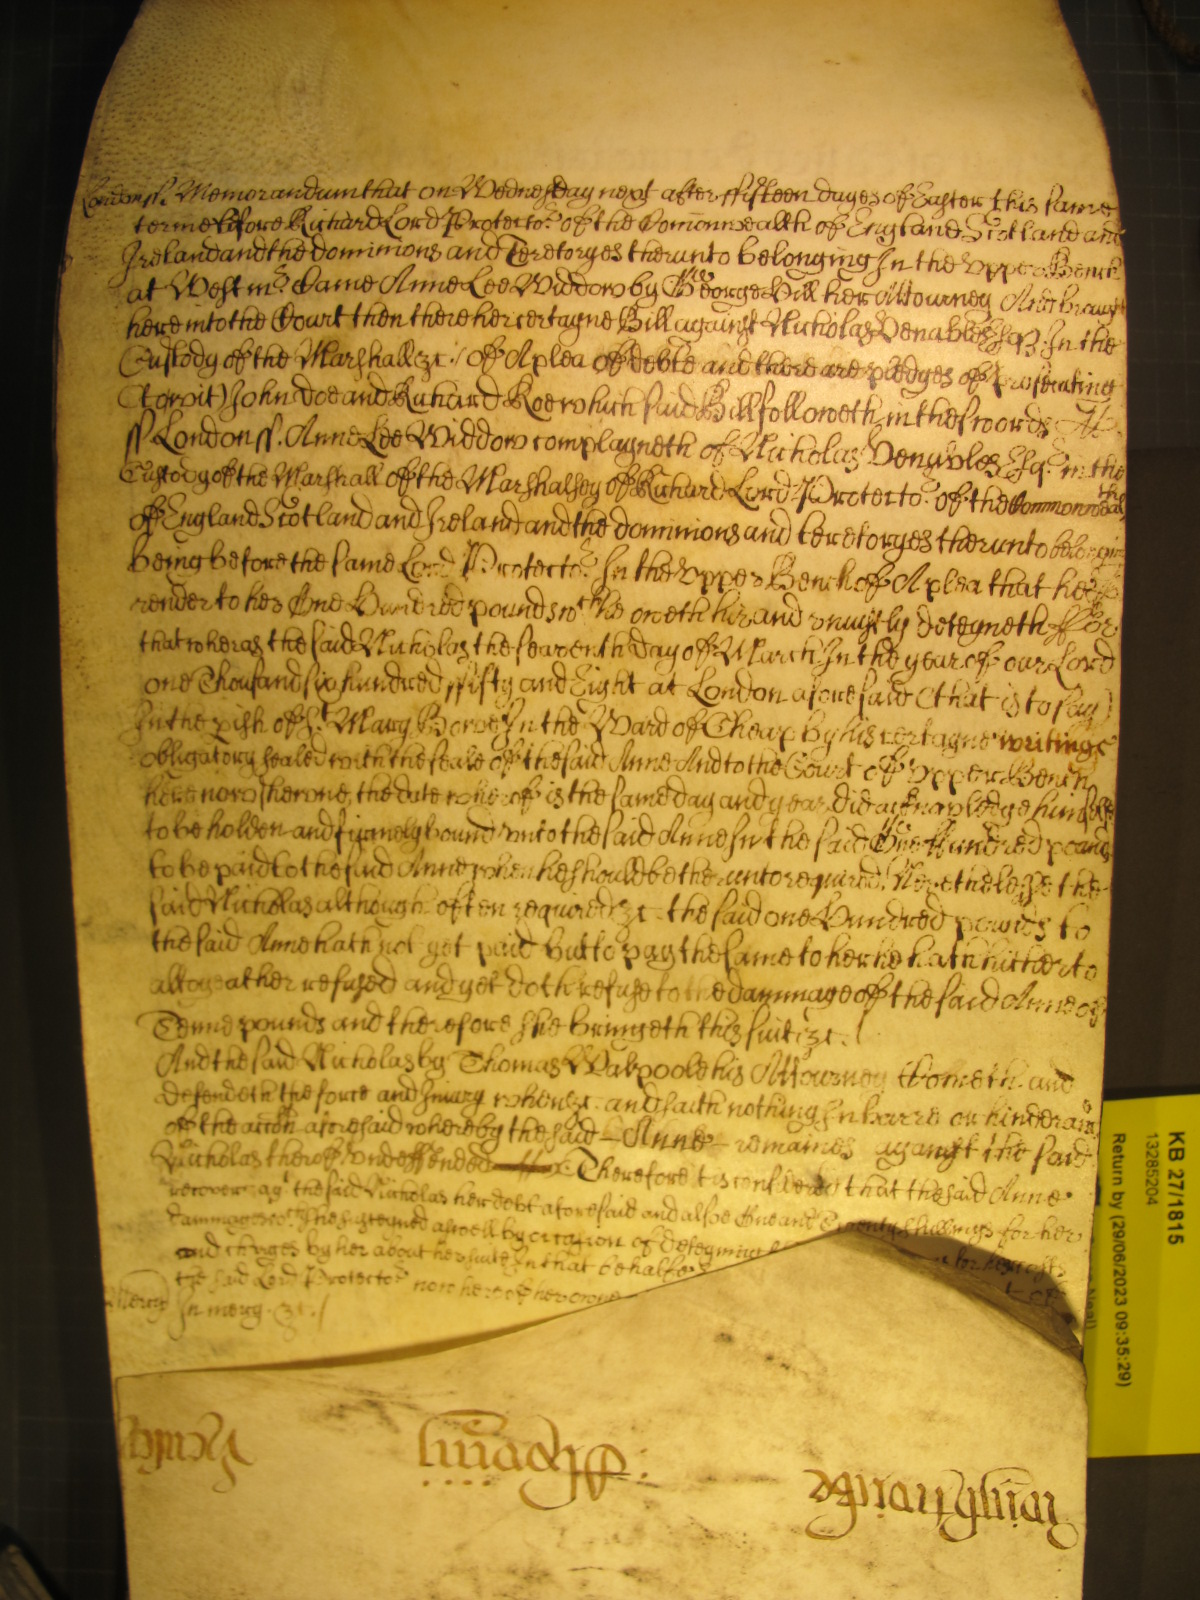 London ss. Memorandum that on Wednesday next after fifteen dayes of Easter this same
terme before Richard Lord Protector of the Comonwealth of England Scotland and
Ireland and the dominions and Teretoryes therunto belonging In the upper Bench
at Westmr. Came Anne Lee Widdow by George Hill her Attourney And brought
here into the Court then there her certayne Bill against Nicholas Venables Esqr. In the
Custody of the Marshall &c. / Of A plea of debte and there are pledges of prosecuting
(to wit) John Doe and Richard Roe which said Bill followeth in thes words
ss London ss. Anne Lee Widdow complayneth of Nicholas Venables Esqr. in the
Custody of the Marshall of the Marshalsey of Richard Lord Protector of the Commonwealth
of England Scotland and Ireland and the dominions and teretoryes therunto belonging
being before the same Lord Protector In the upper Bench of A plea that hee
render to her One Hundred pounds wch he oweth hir and uniustly deteyneth ffor
that wheras the said Nicholas the seaventh day of March In the year of our Lord
one Thousand six hundred ffifty and Eight at London aforesaid (that is to say)
In the pish of St Mary Bowe In the Ward of Cheap by his certayne writinge
obligatory sealed with the seale of the said Anne And to the Court of upper Bench
here now showne, the date wherof is the same day and year did acknowledge himselfe
to be holden and firmely bound unto the said Anne In the said One Hundred pounds
to be paid to the said Anne when he should be therunto required Neverthelesse the
said Nicholas although often required &c. the said one Hundred pounds to
the said Anne hath not yet paid But to pay the same to her he hath hitherto
altogeather refused and yet doth refuse to the dammage of the said Anne of
Tenne pounds and therefore she bringeth this suit &c. /
And the said Nicholas by Thomas Walpoole his Attourney Cometh and
defendeth the force and Iniury when &c. and saith nothing In barre or hinderance
of the accon aforesaid whereby the said Anne remaines against the said
Nicholas therof undeffended Therefore tis considered that the said Anne
recover agt the said Nicholas her debt aforesaid and alsoe One and Twenty shillings for her
dammages wch she susteyned aswell by occasion of deteyning for her costs
and charges by her about her suite In that behalfe
the said Lord Protector now here of her owne
Mercy In mercy. &c. /
KB 27/1815
13285204
Return by (29/06/2023 09:35:29)